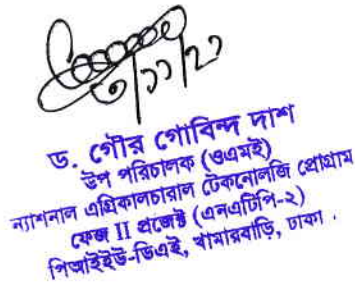 ৩/১১/২১
ড. গৌর গোবিন্দ দাশ
উপ পরিচালক (ওএমই)
ন্যাশনাল এগ্রিকালচারাল টেকনোলজি প্রোগ্রাম
ফেজ II প্রজেক্ট (এনএটিপি-২)
পিআইইউ-ডিএই, খামারবাড়ি, ঢাকা .